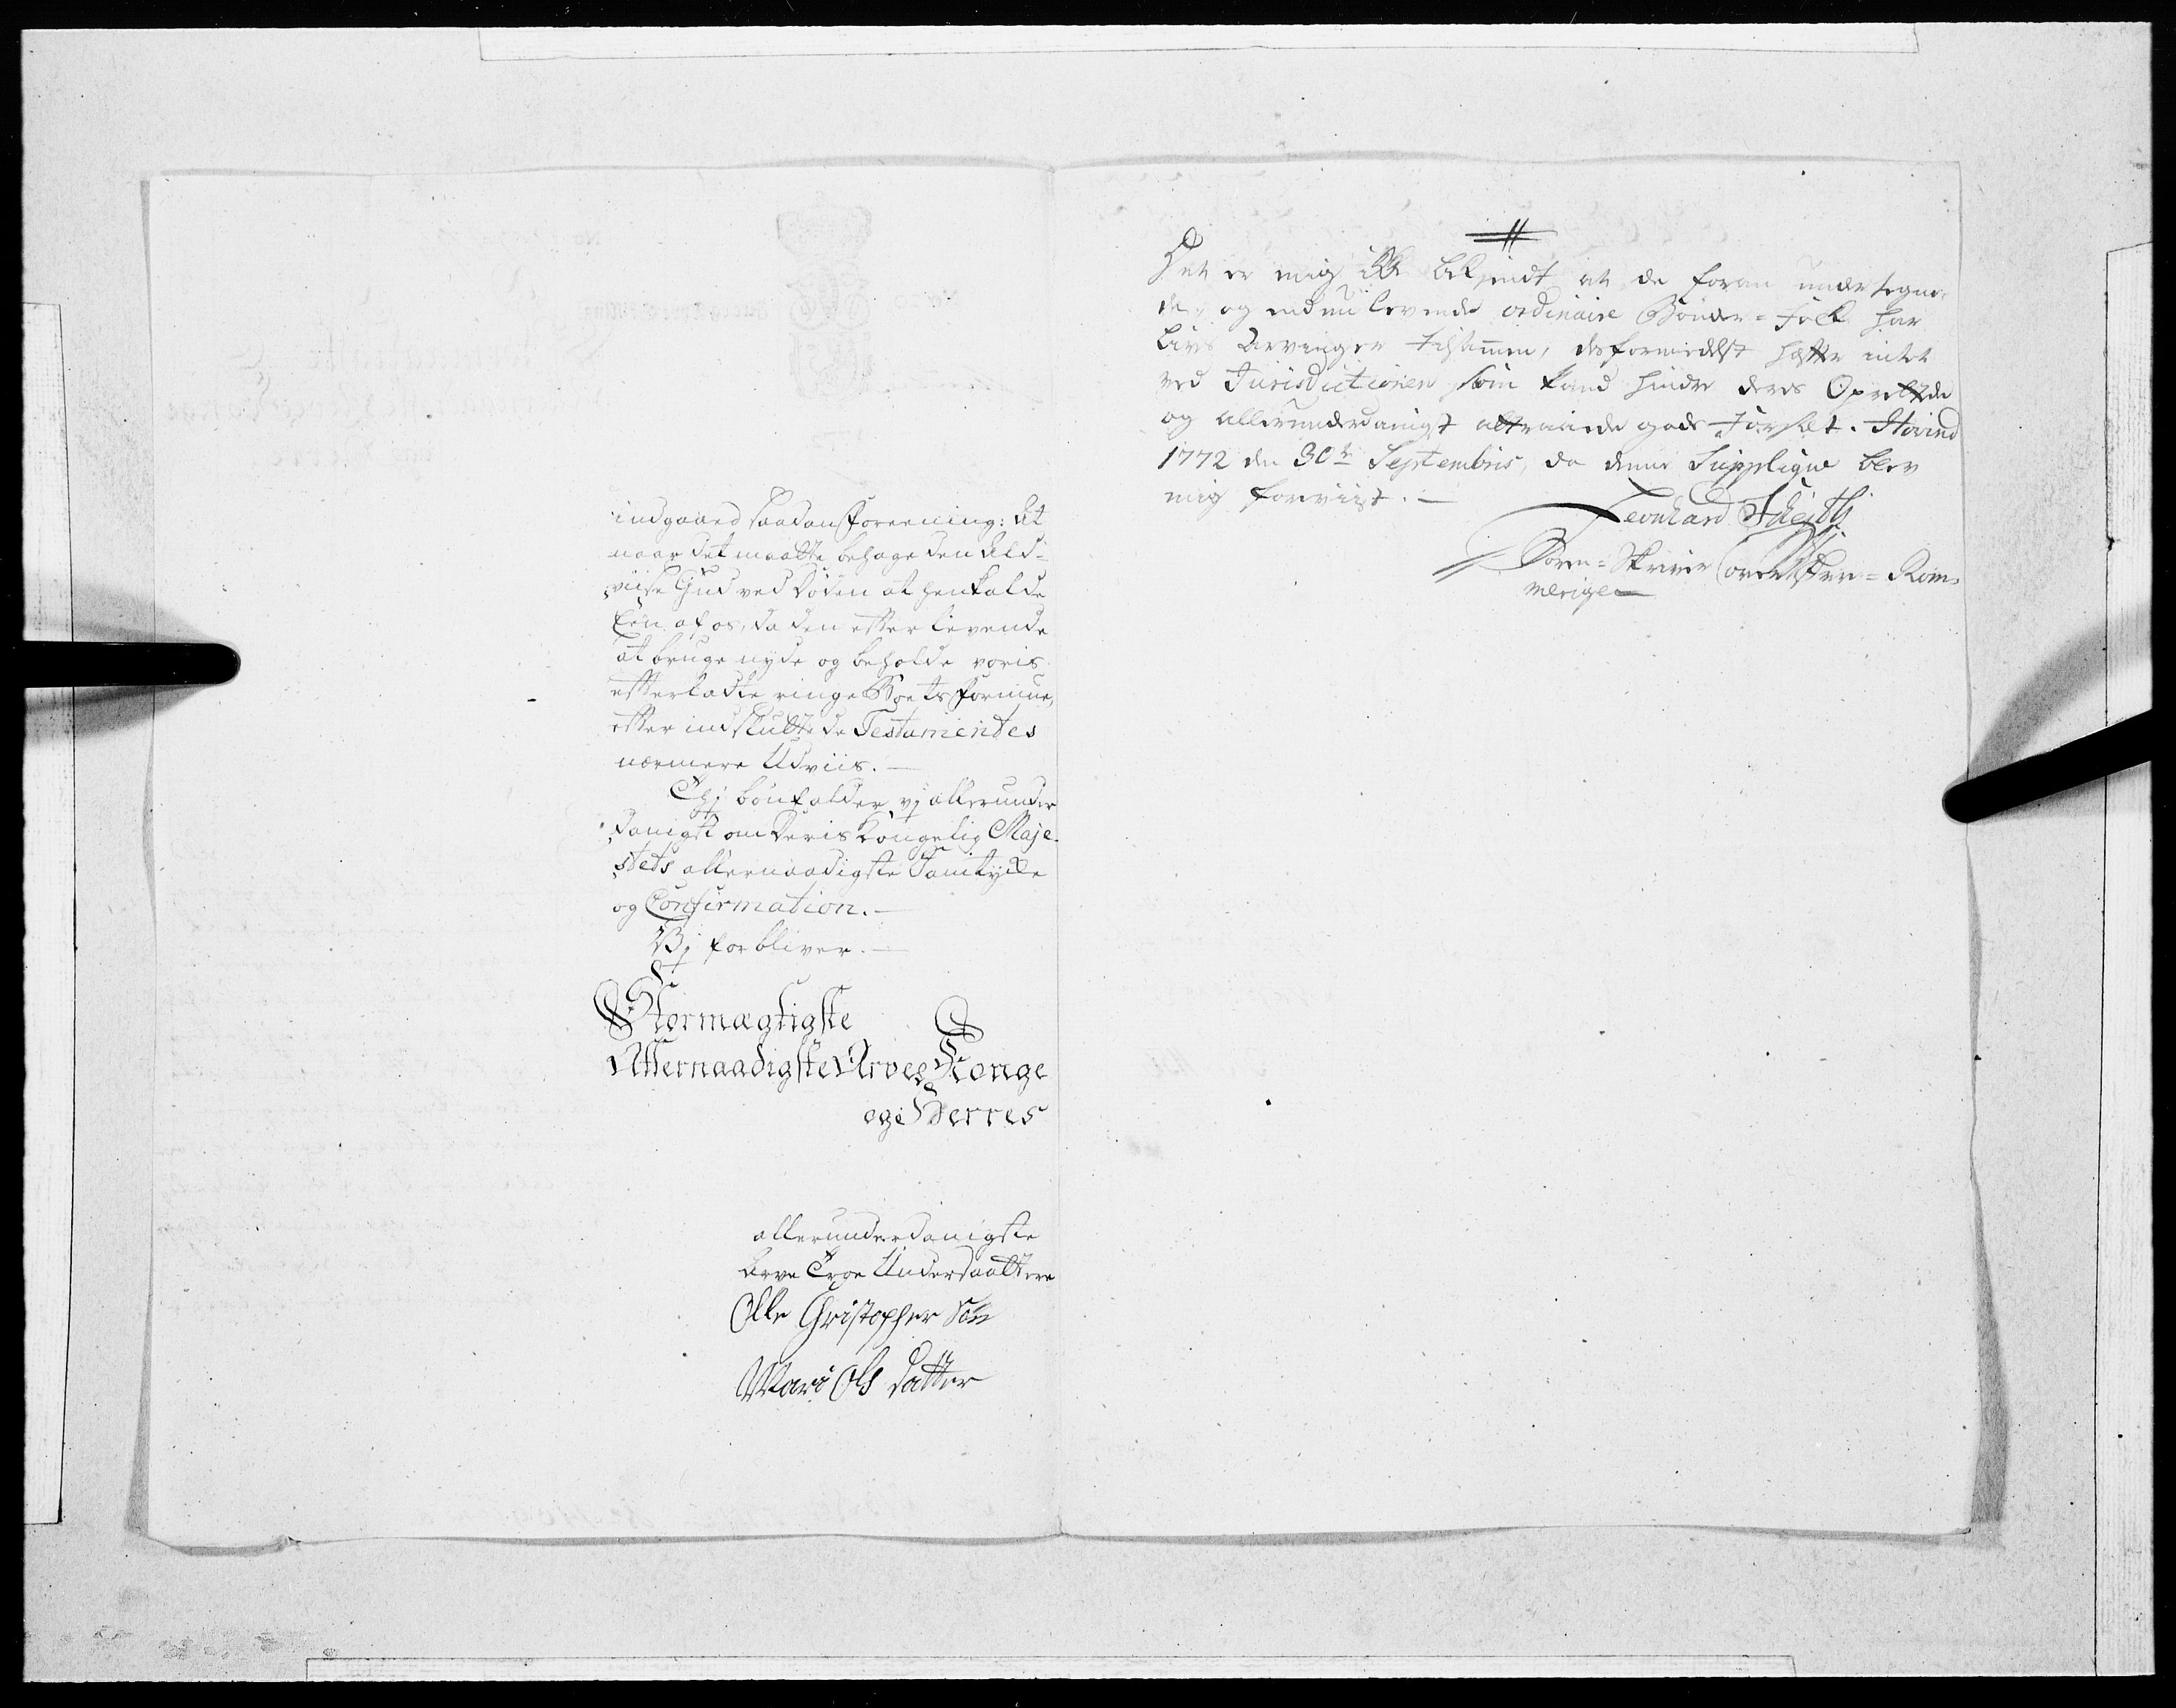 indgaaed saadan Foreening: At
naar det maatte behage den Ald-
viise Gud ved Døden at henkalde
Een af os, da den efter levende
at bruge nyde og beholde voris
efterladte ringe Boets Formue,
efter indsluttede Testamentes
nærmere Udviis. —
Thj bønfalder vj allerunder
danigst om Deris Kongelig Maje-
stets allernaadigste Samtykke
og Confirmation. —
Vj forbliver. —
Stormægtigste
Allernaadigste Arve Konge
og Herres
allerunderdanigste
Arve Troe Undersaattere
Olle Christopher Søn
Mari Ols Datter
Det er mig ikke bekjendt at de foran undertegne-
de, og endnu levende ordinaire Bønder-Folk har
Livs Arvinger tilsammen, desformedelst hæfter intet
ved Jurisdictionen som kand hindre deres Oprettede
og allerunderdanigst gode Forsæt. Hovind
1772 den 30te Septembris, da denne Supplique blev
mig foreviist. —
Leonhard
Soren-Skriver over Rom-
merige